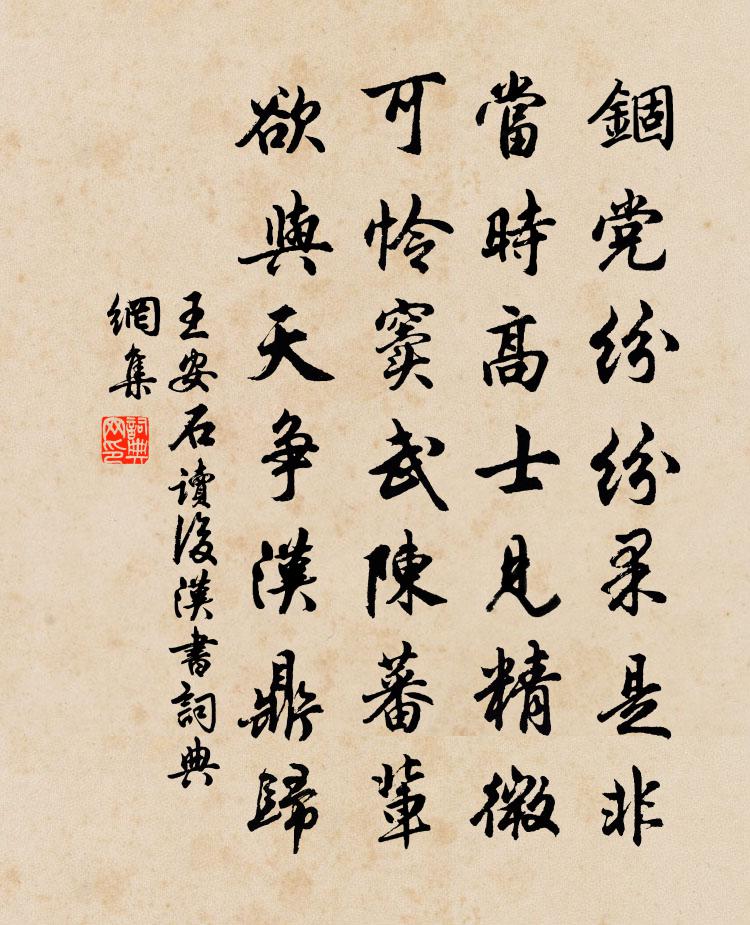 錮党紛紛果是非
當時高士見精微
可怜竇武陳蕃輩
欲與天爭漢鼎歸
王安石讀後漢書詞典
網集
詞典
网印